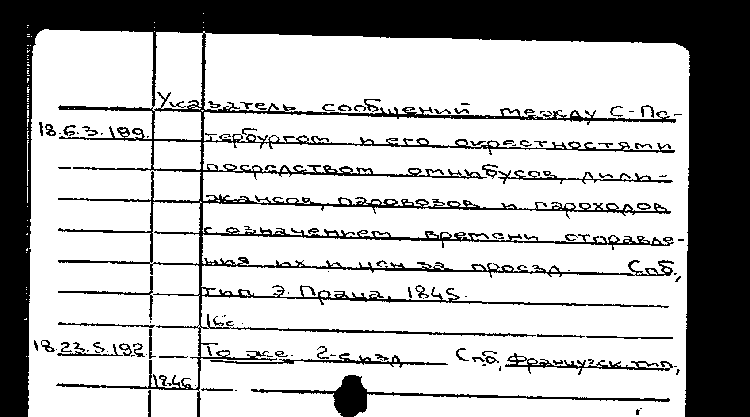 Указатель сообщений между С-Пе-
18.6.3.199 тербургом и его окрестностями
посредством омнибусов, дили-
жансов, паровозов и пароходов
с означением времени отправле-
ния их и цен за проезд. Спб.,
тип. Э. Праца, 1845.
16с.
18.23.5.192 То же. 2-е изд. Спб, Французск. тип.,
1846